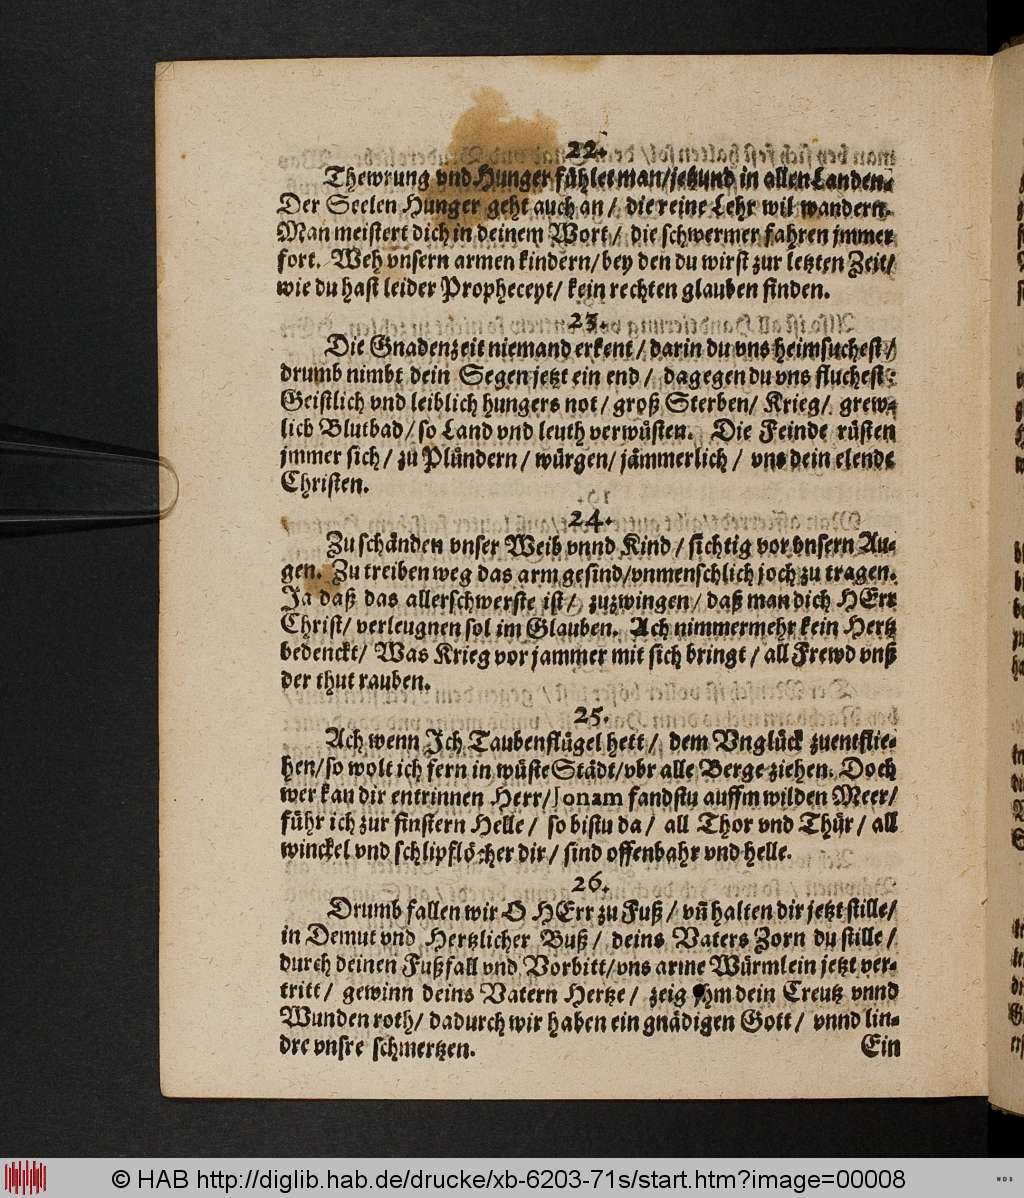 22.
Thewrung vnd Hunger fühlet man/jetzund in allen Landen.
Der Seelen Hunger geht auch an / die reine Lehr wil wandern.
Man meistert dich in deinem Wort / die schwermer fahren jmmer
fort. Weh vnsern armen kindern/bey den du wirst zur letzten Zeit/
wie du hast leider Prophecept/ kein rechten glauben finden.
23.
Die Gnadenzeit niemand erkent / darin du vns heimsuchest /
drumb nimbt dein Segen jetzt ein end / dagegen du vns fluchest:
Geistlich vnd leiblich hungers not / groß Sterben/ Krieg/ grew-
lich Blutbad/ so Land vnd leuth verwüsten. Die Feinde rüsten
jmmer sich / zu Plündern / würgen/ jämmerlich / vns dein elende
Christen.
24.
Zu schänden vnser Weib vnnd Kind / sichtig vor vnsern Au-
gen. Zu treiben weg das arm gesind/vnmenschlich joch zu tragen.
Ja daß das allerschwerste ist / zuzwingen / daß man dich HErr
Christ/ verleugnen sol im Glauben. Ach nimmermehr kein Hertz
bedenckt/ Was Krieg vor jammer mit sich bringt / all Frewd vnß
der thut rauben.
25.
Ach wenn Ich Taubenflügel hett / dem Vnglück zuentflie-
hen/so wolt ich fern in wüste Städt/vbr alle Berge ziehen. Doch
wer kan dir entrinnen Herr/Jonam fandstu auffm wilden Meer/
führ ich zur finstern Helle / so bistu da / all Thor vnd Thür / all
winckel vnd schlipflöcher dir / sind offenbahr vnd helle.
26.
Drumb fallen wir O HErr zu Fuß / vñ halten dir jetzt stille/
in Demut vnd Hertzlicher Buß / deins Vaters Zorn du stille /
durch deinen Fußfall vnd Vorbitt/vns arme Würmlein jetzt ver-
tritt / gewinn deins Vatern Hertze / zeig jhm dein Creutz vnnd
Wunden roth/ dadurch wir haben ein gnädigen Gott / vnnd lin-
dre vnsre schmertzen.
Ein
© HAB http://diglib.hab.de/drucke/xb-6203-71s/start.htm?image=00008